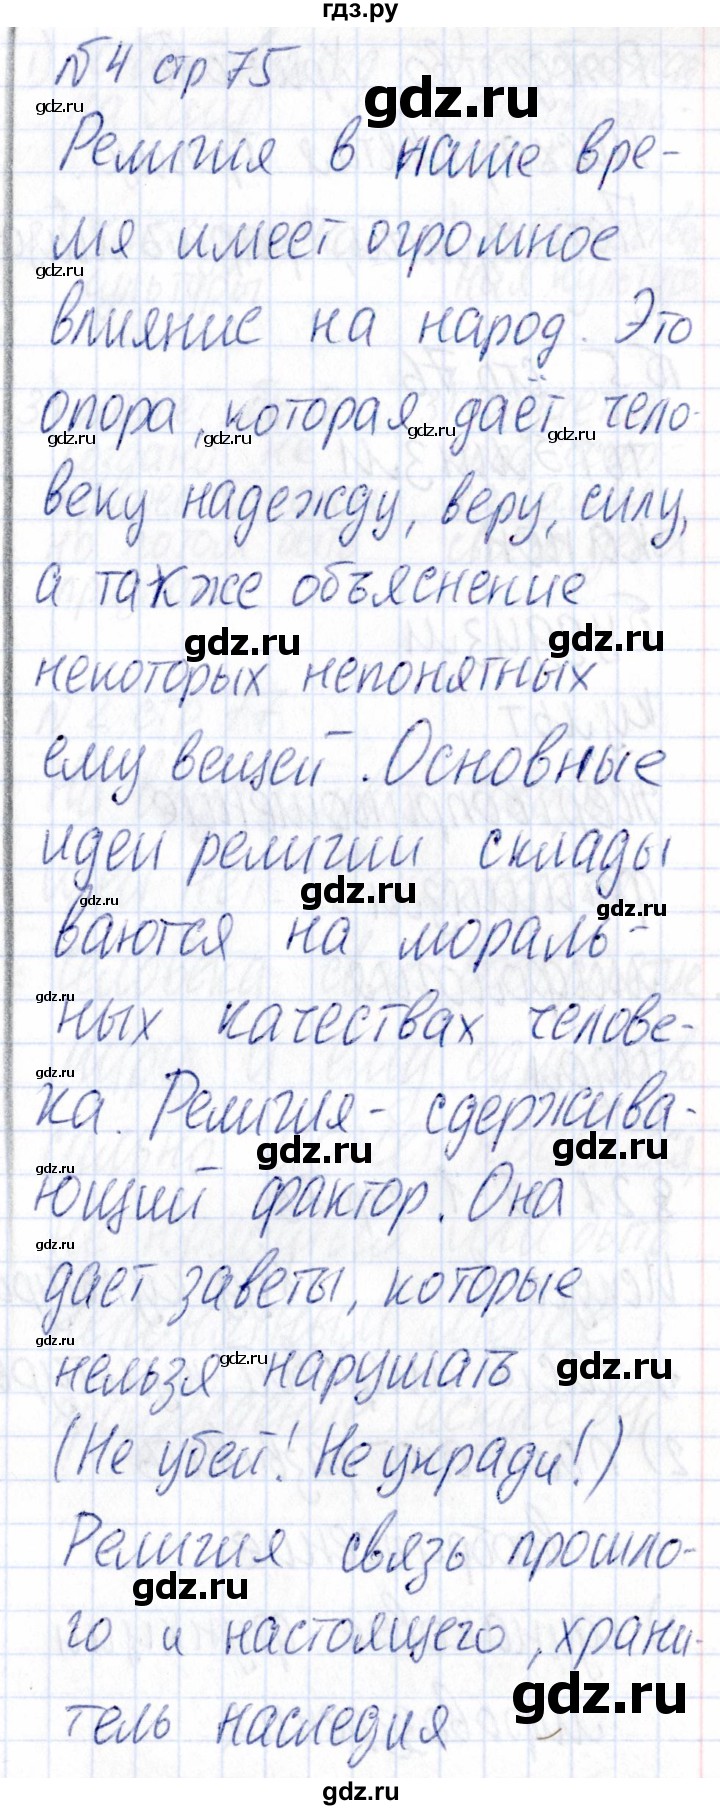 гдз.ру
№4 стр 75
gdz.ru
gdz.ru
Религия в наше вре-
мя имеет огромное
gdz.ru
влияние на народ. Это
опора, которая даёт чело-
gdz.ru gdz.ru gdz.ru gdz.ru
веку надежду, веру, силу,
а также объяснение
gdz.ru gdz.ru
некоторых непонятных
ему вещей. Основные
идеи религии склады
gdz.ru gdz.ru gdz.ru
ваются на мораль-
gdz.ru
ных качествах челове-
gdz.ru
ка. Религия - сдержива-
gdz.ru gdz.ru
gdz.ru
ющий фактор. Она
gdz.ru
дает заветы, которые
gdz.ru gdz.ru gdz.ru
нельзя нарушать
(Не убей! Не укради!)
Религия связь прошло-
gdz.ru
го и настоящего, храни-
gdz.ru
тель наследия
gdz.ru